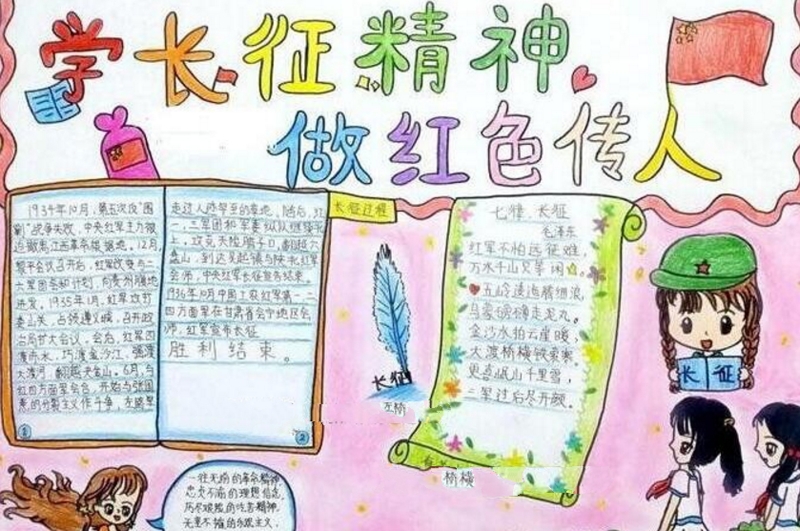 学长征精神
做红色传人
1934年10月，第五次反"围
剿"战争失败，中央红军主力被
迫撤离江西革命根据地，12月，
黎平会议召开后，红军改变与二
六军团会和计划，向贵州腹地
进发，1935年1月，红军攻打
娄山关，占领遵义城，召开政
治局扩大会议，会后，红军四
渡赤水，巧渡金沙江，强渡
大渡河，翻越夹金山。6月，与
红四方面军会合，开始与张国
焘的分裂主义作斗争，左路军
①
走过人际罕至的草地，随后，红
一，三军团和军委纵队继续北
上，攻克天险腊子口，翻越六
盘山，到达吴起镇与陕北红军
会师，中央红军长征宣告结束。
1936年10月中国工农红军第一、二
四方面军在甘肃省会宁地区会
师，红军宣布长征
胜利结束。
②
长征过程
长征
七律·长征
毛泽东
红军不怕远征难，
万水千山只等闲
五岭逶迤腾细浪，
乌蒙磅礴走泥丸。
金沙水拍云崖暖，
大渡桥横铁索寒。
更喜岷山千里雪，
三军过后尽开颜。
桥横
长征
一往无前的革命精神
忠贞不渝的理想信念
历尽艰险的吃苦精神